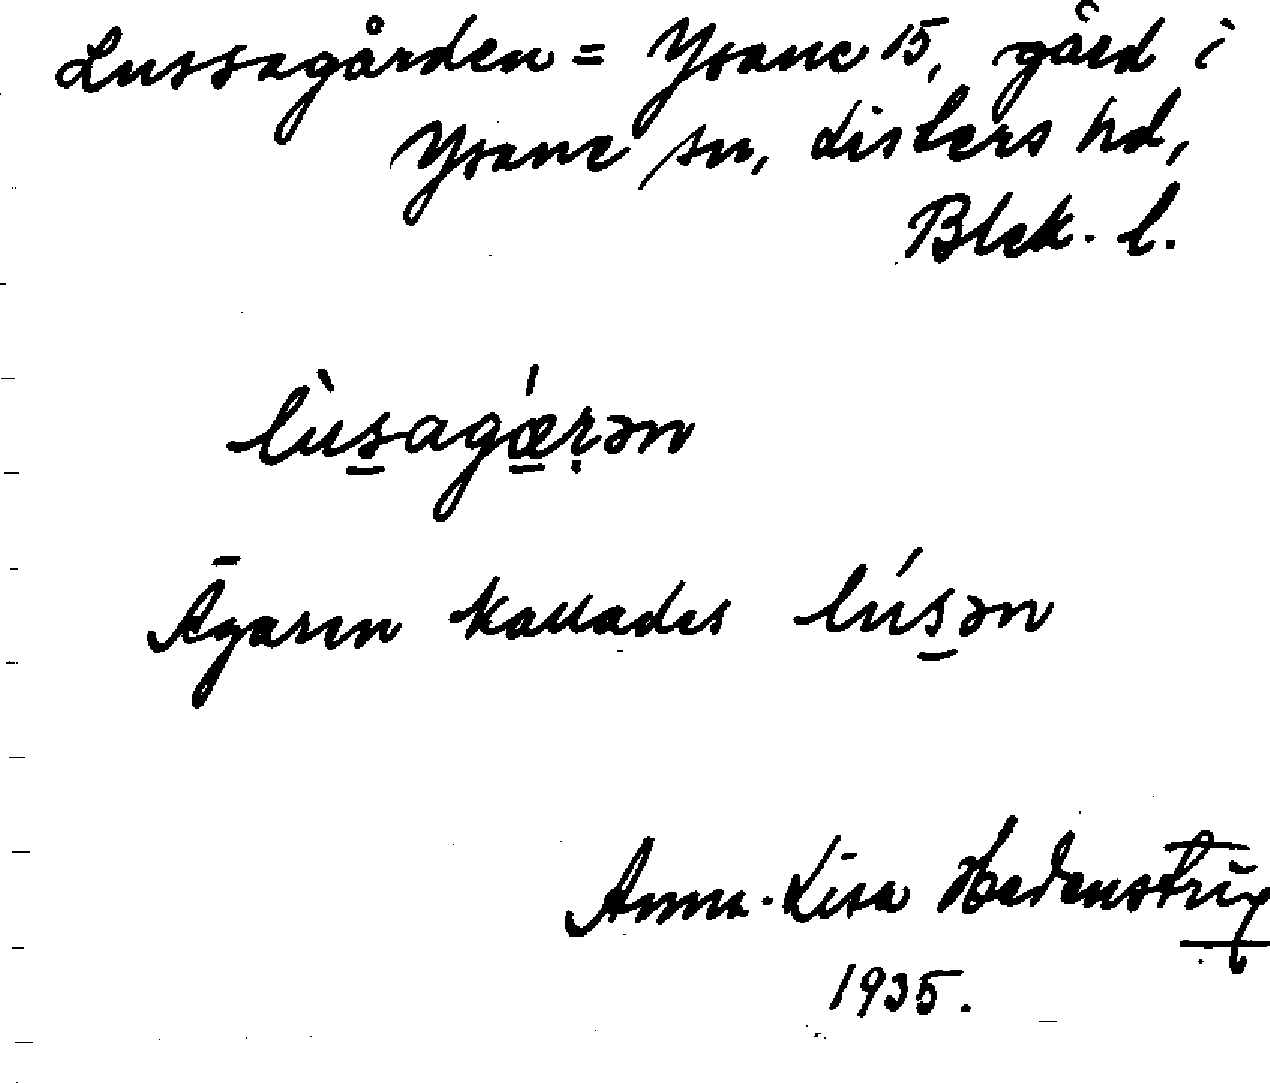 Lussagården = Ysane 15, gård i
Ysane sn, Listers hd,
Blek. l.
lùs̲agǽ̲ṛən
Ägaren kallades lús̲ən
Anna-Lisa Hedenstrüp
1935.